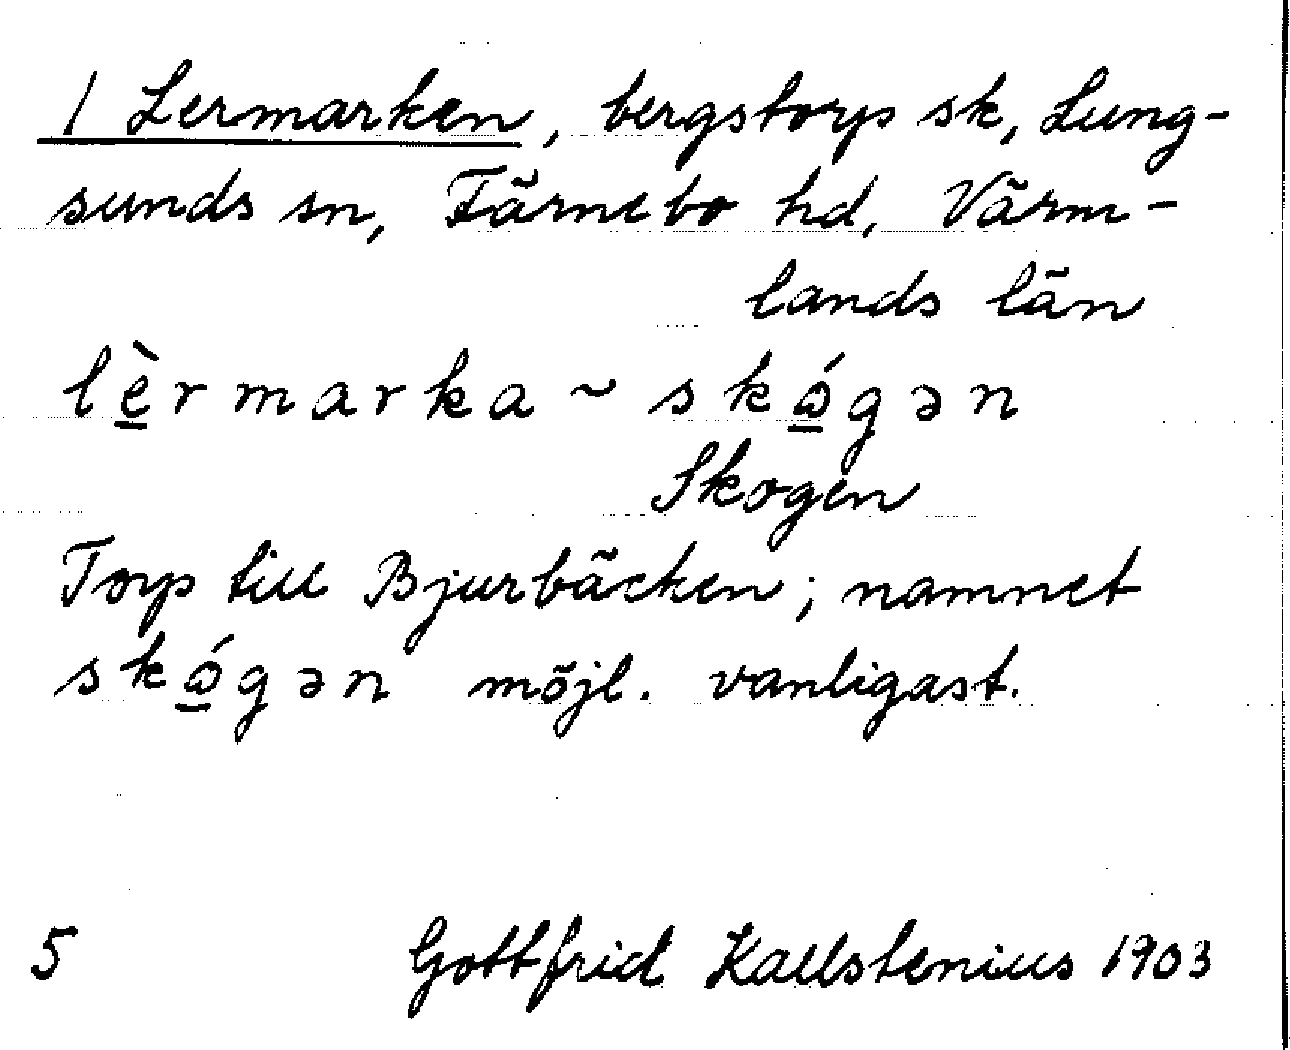 1 Lermarken, bergstorps sk, Lung-
sunds sn, Färnebo hd, Värm-
lands län
lè̲rmarka ~ skɷ̲́gən
Skogen
Torp till Bjurbäcken; namnet
skɷ̲́gən möjl. vanligast.
5 Gottfrid Kallstenius 1903